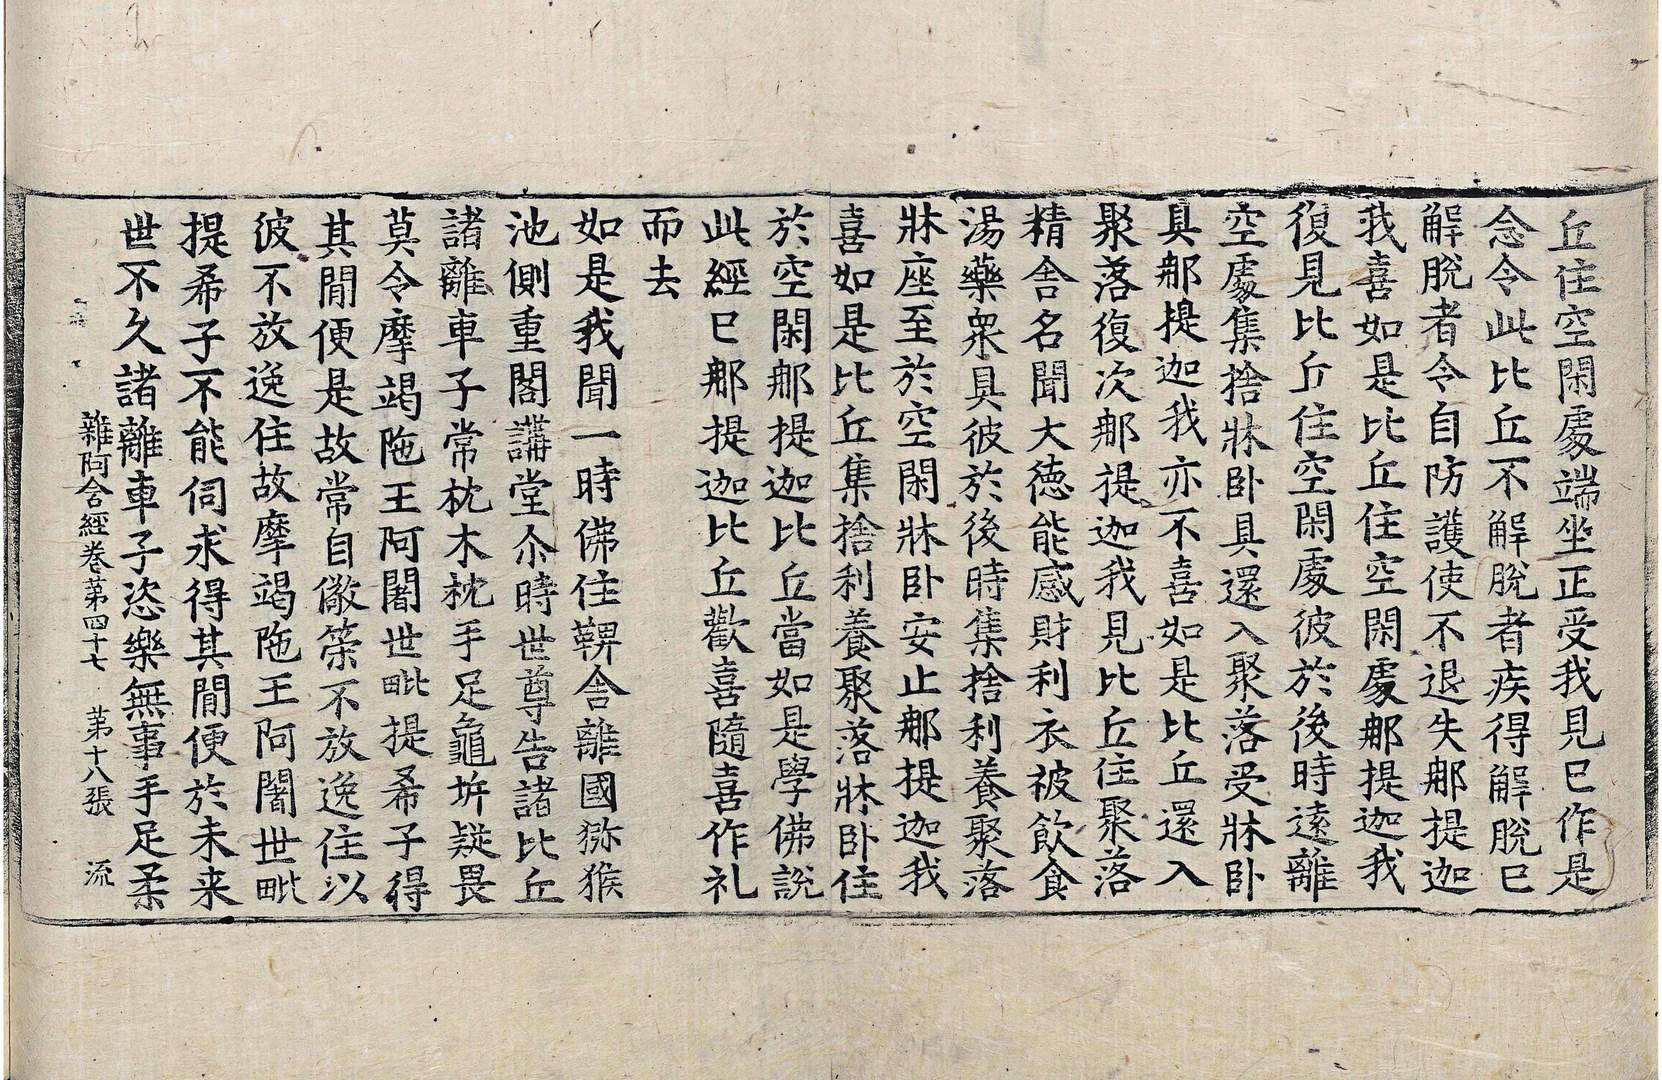 丘住空閑處端坐正受我見已作是
念令此比丘不解脫者疾得解脫已
解脫者令自防護使不退失那提迦
我喜如是比丘住空閑處那提迦我
復見比丘住空閑處彼於後時遠離
空處集捨牀卧具還入聚落受牀卧
具那提迦我亦不喜如是比丘還入
聚落復次那提迦我見比丘住聚落
精舍名聞大德能感財利衣被飲食
湯藥衆具彼於後時集捨利養聚落
牀座至於空閑牀卧安止那提迦我
喜如是比丘集捨利養聚落牀卧住
於空閑那提迦比丘當如是學佛說
此經已那提迦比丘歡喜隨喜作礼
而去
如是我聞一時佛住鞞舍離國獼猴
池側重閣講堂尒時世尊告諸比丘
諸離車子常枕木枕手足龜坼疑畏
莫令摩竭陁王阿闍世毗提希子得
其閒便是故常自儆策不放逸住以
彼不放逸住故摩竭陁王阿闍世毗
提希子不能伺求得其閒便於未来
世不久諸離車子恣樂無事手足柔
雜阿含經卷第四十七 第十八張 流